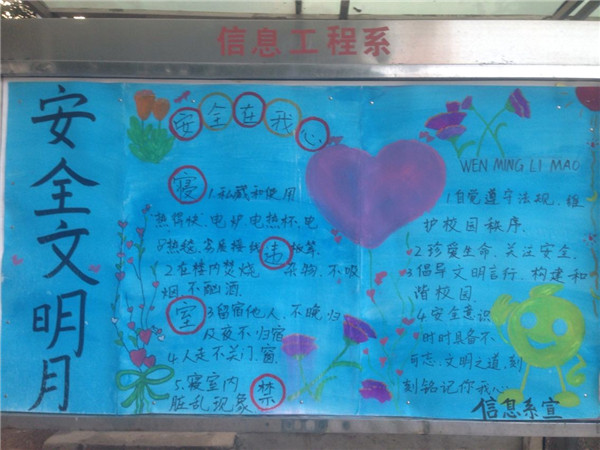 信息工程系
安全文明月
安全在我心
寝
1.私藏和使用
热得快、电炉、电热杯、电
热毯、劣质接线板等.
违
2.在楼内焚烧杂物,不吸
烟不酗酒.
室
3.留宿他人、不晚归
及夜不归宿
4.人走不关门、窗
5.寝室内
脏乱现象
禁
WEN MING LI MAO
1.自觉遵守法规,维
护校园秩序.
2.珍爱生命、关注安全.
3.倡导文明言行、构建和
谐校园.
4.安全意识
时时具备不
可忘.文明之道,刻
刻铭记你我心
信息系宣